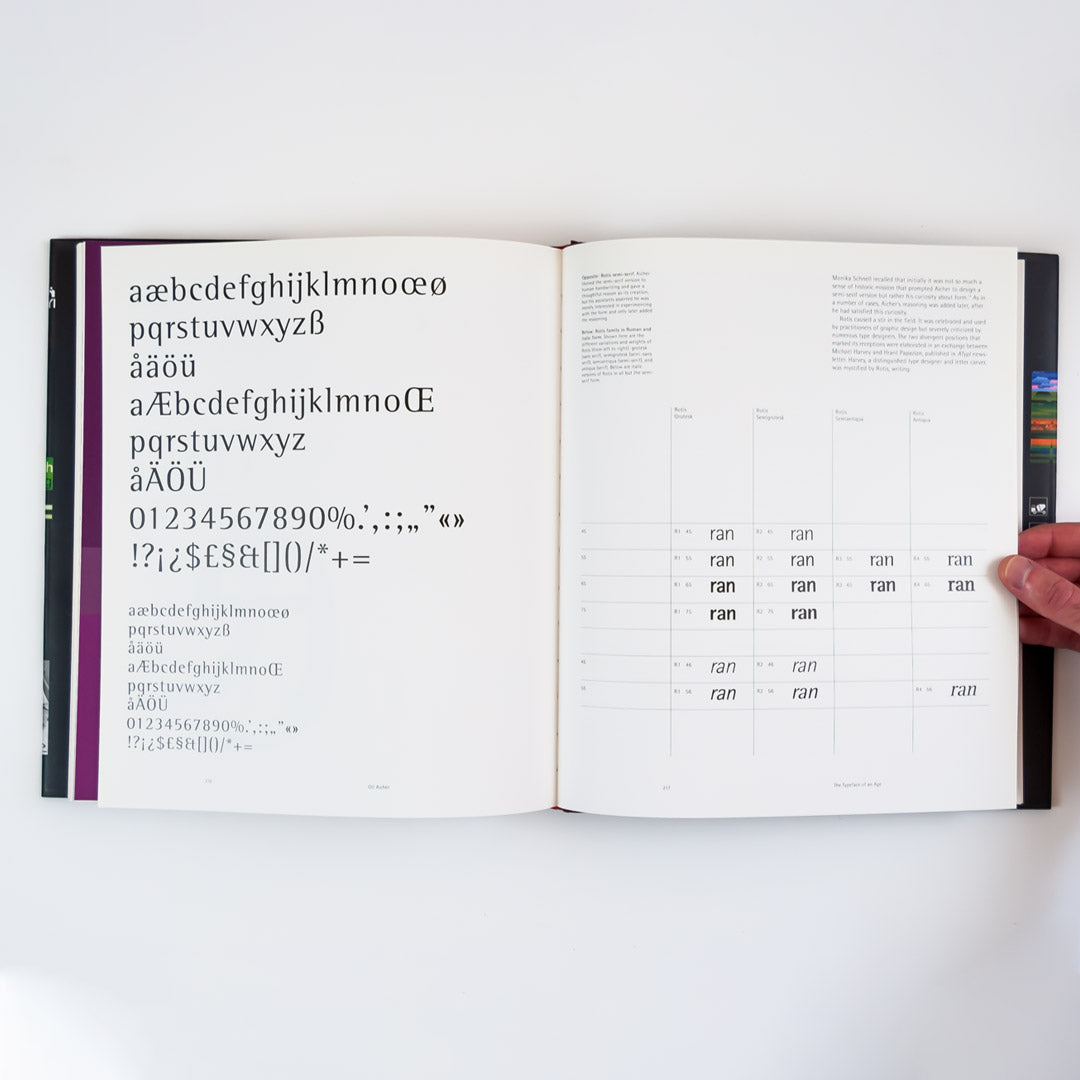 aæbcdefghijklmnoœø
pqrstuvwxyzß
åäöü
aÆbcdefghijklmnoŒ
pqrstuvwxyz
åÄÖÜ
01234567890%.’,:;„”«»
!?¡¿$£§&[]()/*+=
aæbcdefghijklmnoœø
pqrstuvwxyzß
åäöü
aÆbcdefghijklmnoŒ
pqrstuvwxyz
åÄÖÜ
01234567890%.’,:;„”«»
!?¡¿$£§&[]()/*+=
216
Otl Aicher
Opposite: Rotis semi-serif. Aicher
likened the semi-serif version to
human handwriting and gave a
thoughtful reason as its creation,
but his assistants asserted he was
merely interested in experimenting
with the form and only later added
the reasoning.
Below: Rotis family in Roman and
italic form. Shown here are the
different variations and weights of
Rotis (from left to right): grotesk
(sans serif), semigrotesk (semi-sans
serif), semiantiqua (semi-serif), and
antiqua (serif). Below are italic
versions of Rotis in all but the semi-
serif form.
Monika Schnell recalled that initially it was not so much a
sense of historic mission that prompted Aicher to design a
semi-serif version but rather his curiosity about form. As in
a number of cases, Aicher's reasoning was added later, after
he had satisfied this curiosity.
Rotis caused a stir in the field. It was celebrated and used
by practitioners of graphic design but severely criticized by
numerous type designers. The two divergent positions that
marked its receptions were elaborated in an exchange between
Michael Harvey and Hrant Papazian, published in ATypI news-
letter. Harvey, a distinguished type designer and letter carver,
was mystified by Rotis, writing:
Rotis Rotis Rotis Rotis
Grotesk Semigrotesk Semiantiqua Antiqua
45 R1 45 ran R2 45 ran
55 R1 55 ran R2 55 ran R3 55 ran R4 55 ran
65 R1 65 ran R2 65 ran R3 65 ran R4 65 ran
75 R1 75 ran R2 75 ran
46 R1 46 ran R2 46 ran
56 R1 56 ran R2 56 ran R4 56 ran
217
The Typeface of an Age